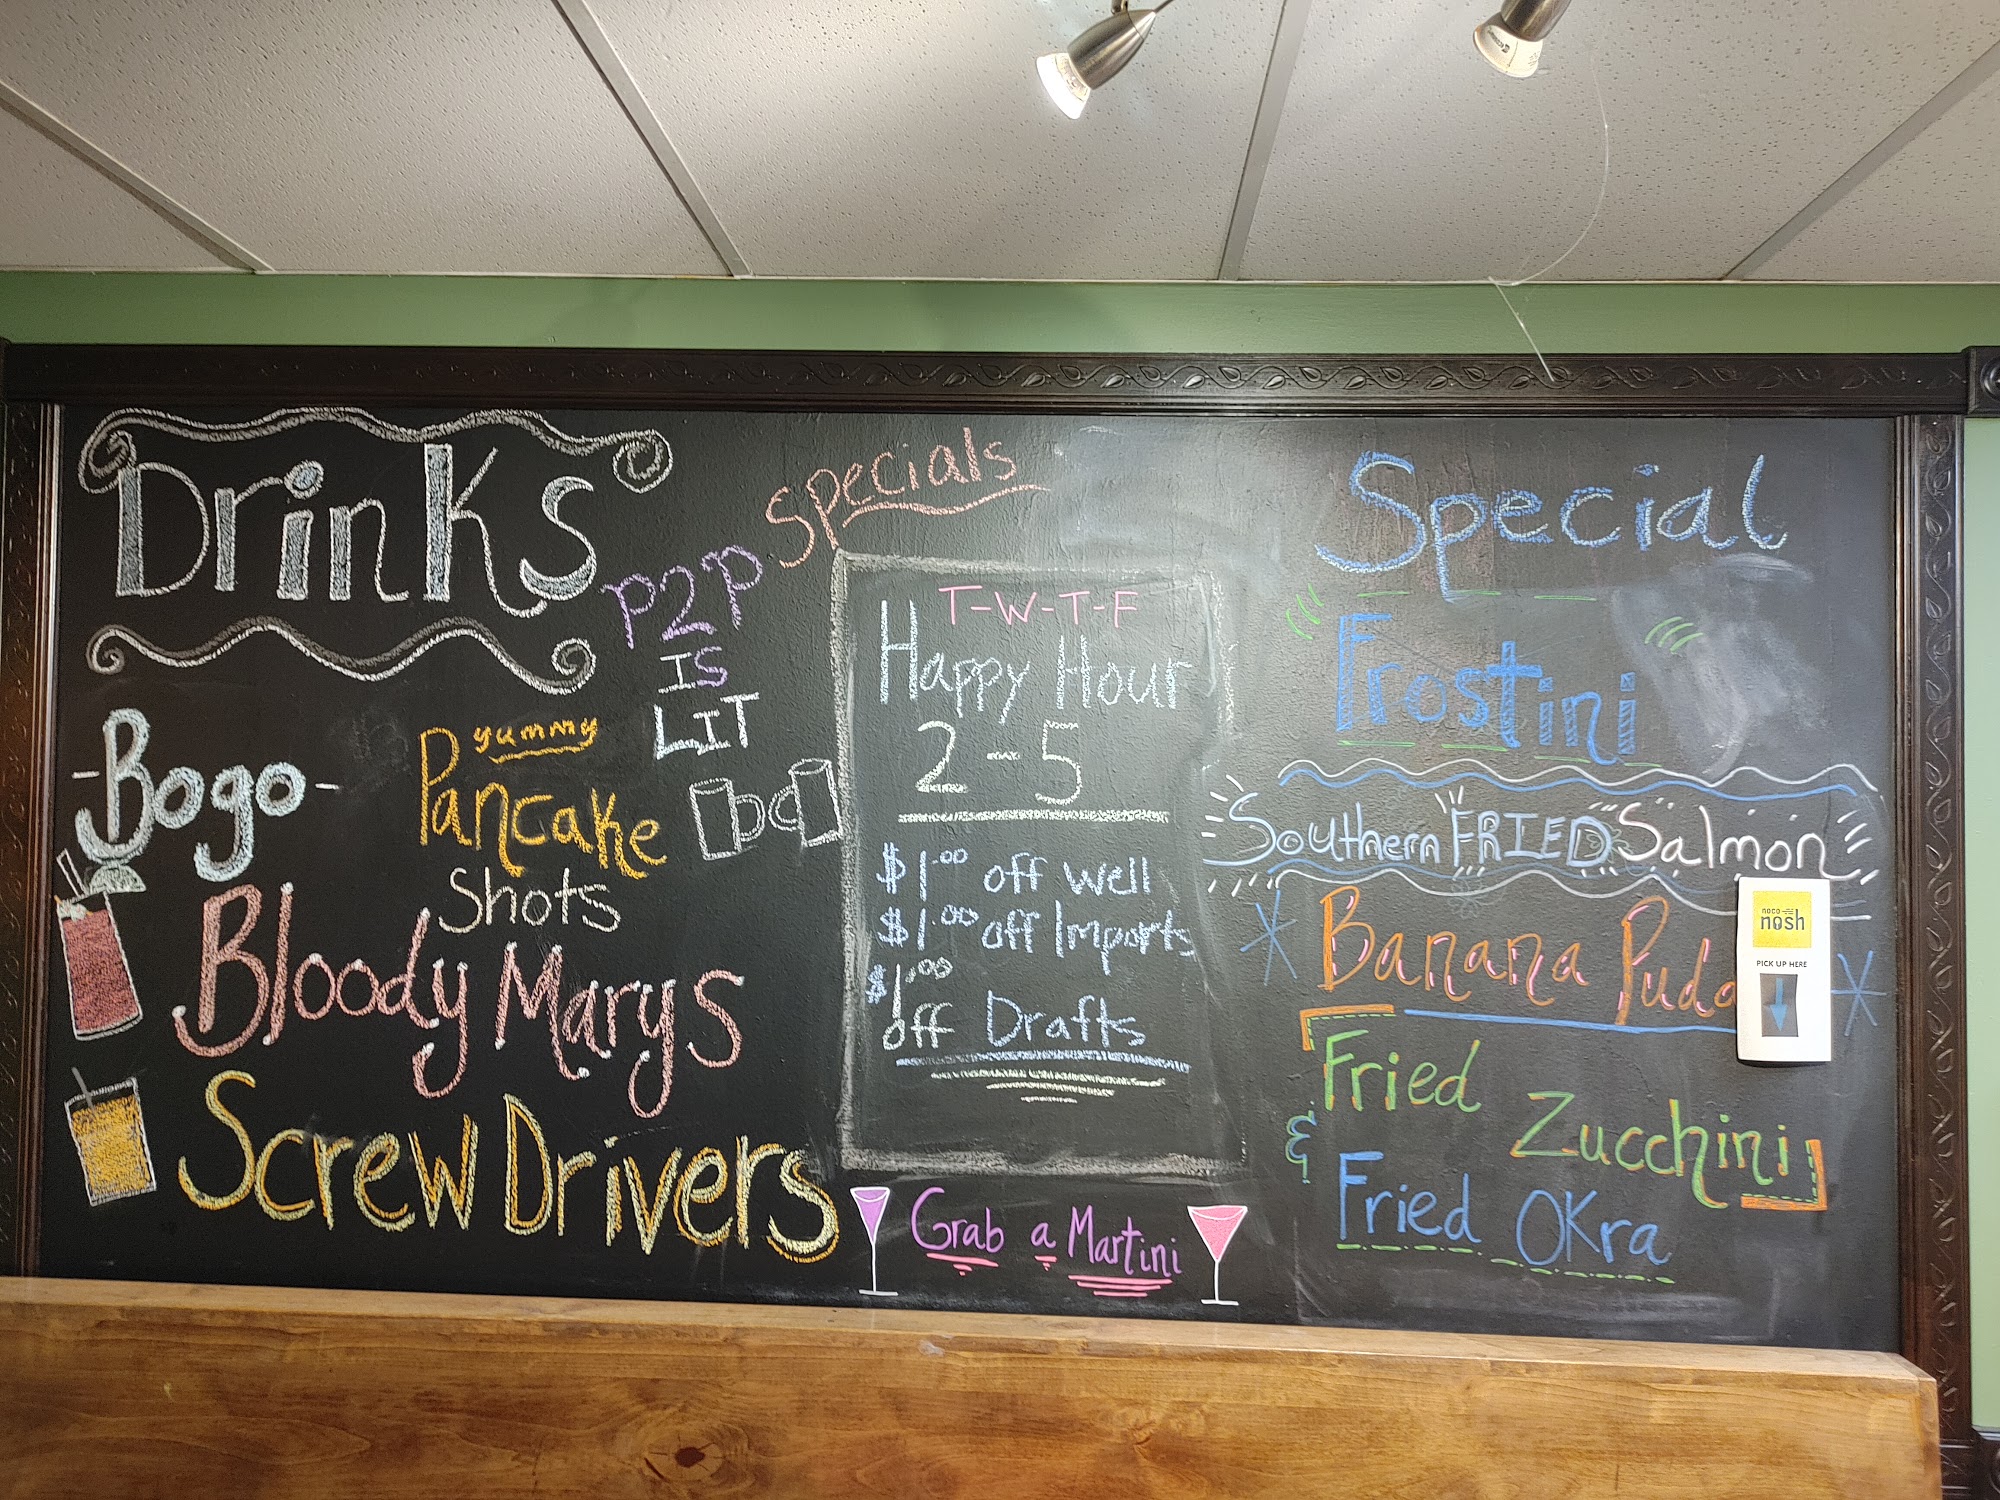 Drinks
Specials
P2P
IS
LIT
-Bogo-
yummy
Pancake
Shots
Bloody Marys
Screw Drivers
T-W-T-F
Happy Hour
2-5
$1.00 off well
$1.00 off Imports
$1.00
off Drafts
Grab a Martini
Special
Frostini
Southern "FRIED" Salmon
Banana
noco
nosh
PICK UP HERE
Fried Zucchini
& Fried OKra